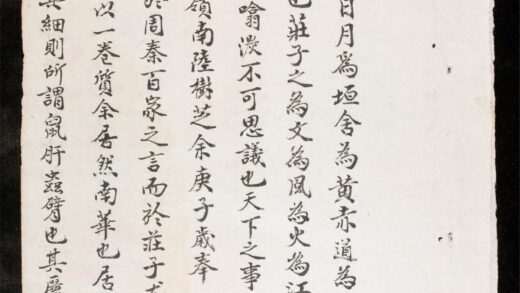 日月爲垣舍為黃赤道為
也莊子之為文為風為火為江
噏不可思議也天下之事
嶺南陸樹芝余庚子歲奉
於周秦百家之言而於莊子尤
以一卷質余居然南華也居
其細則所謂鼠肝蟲臂也其